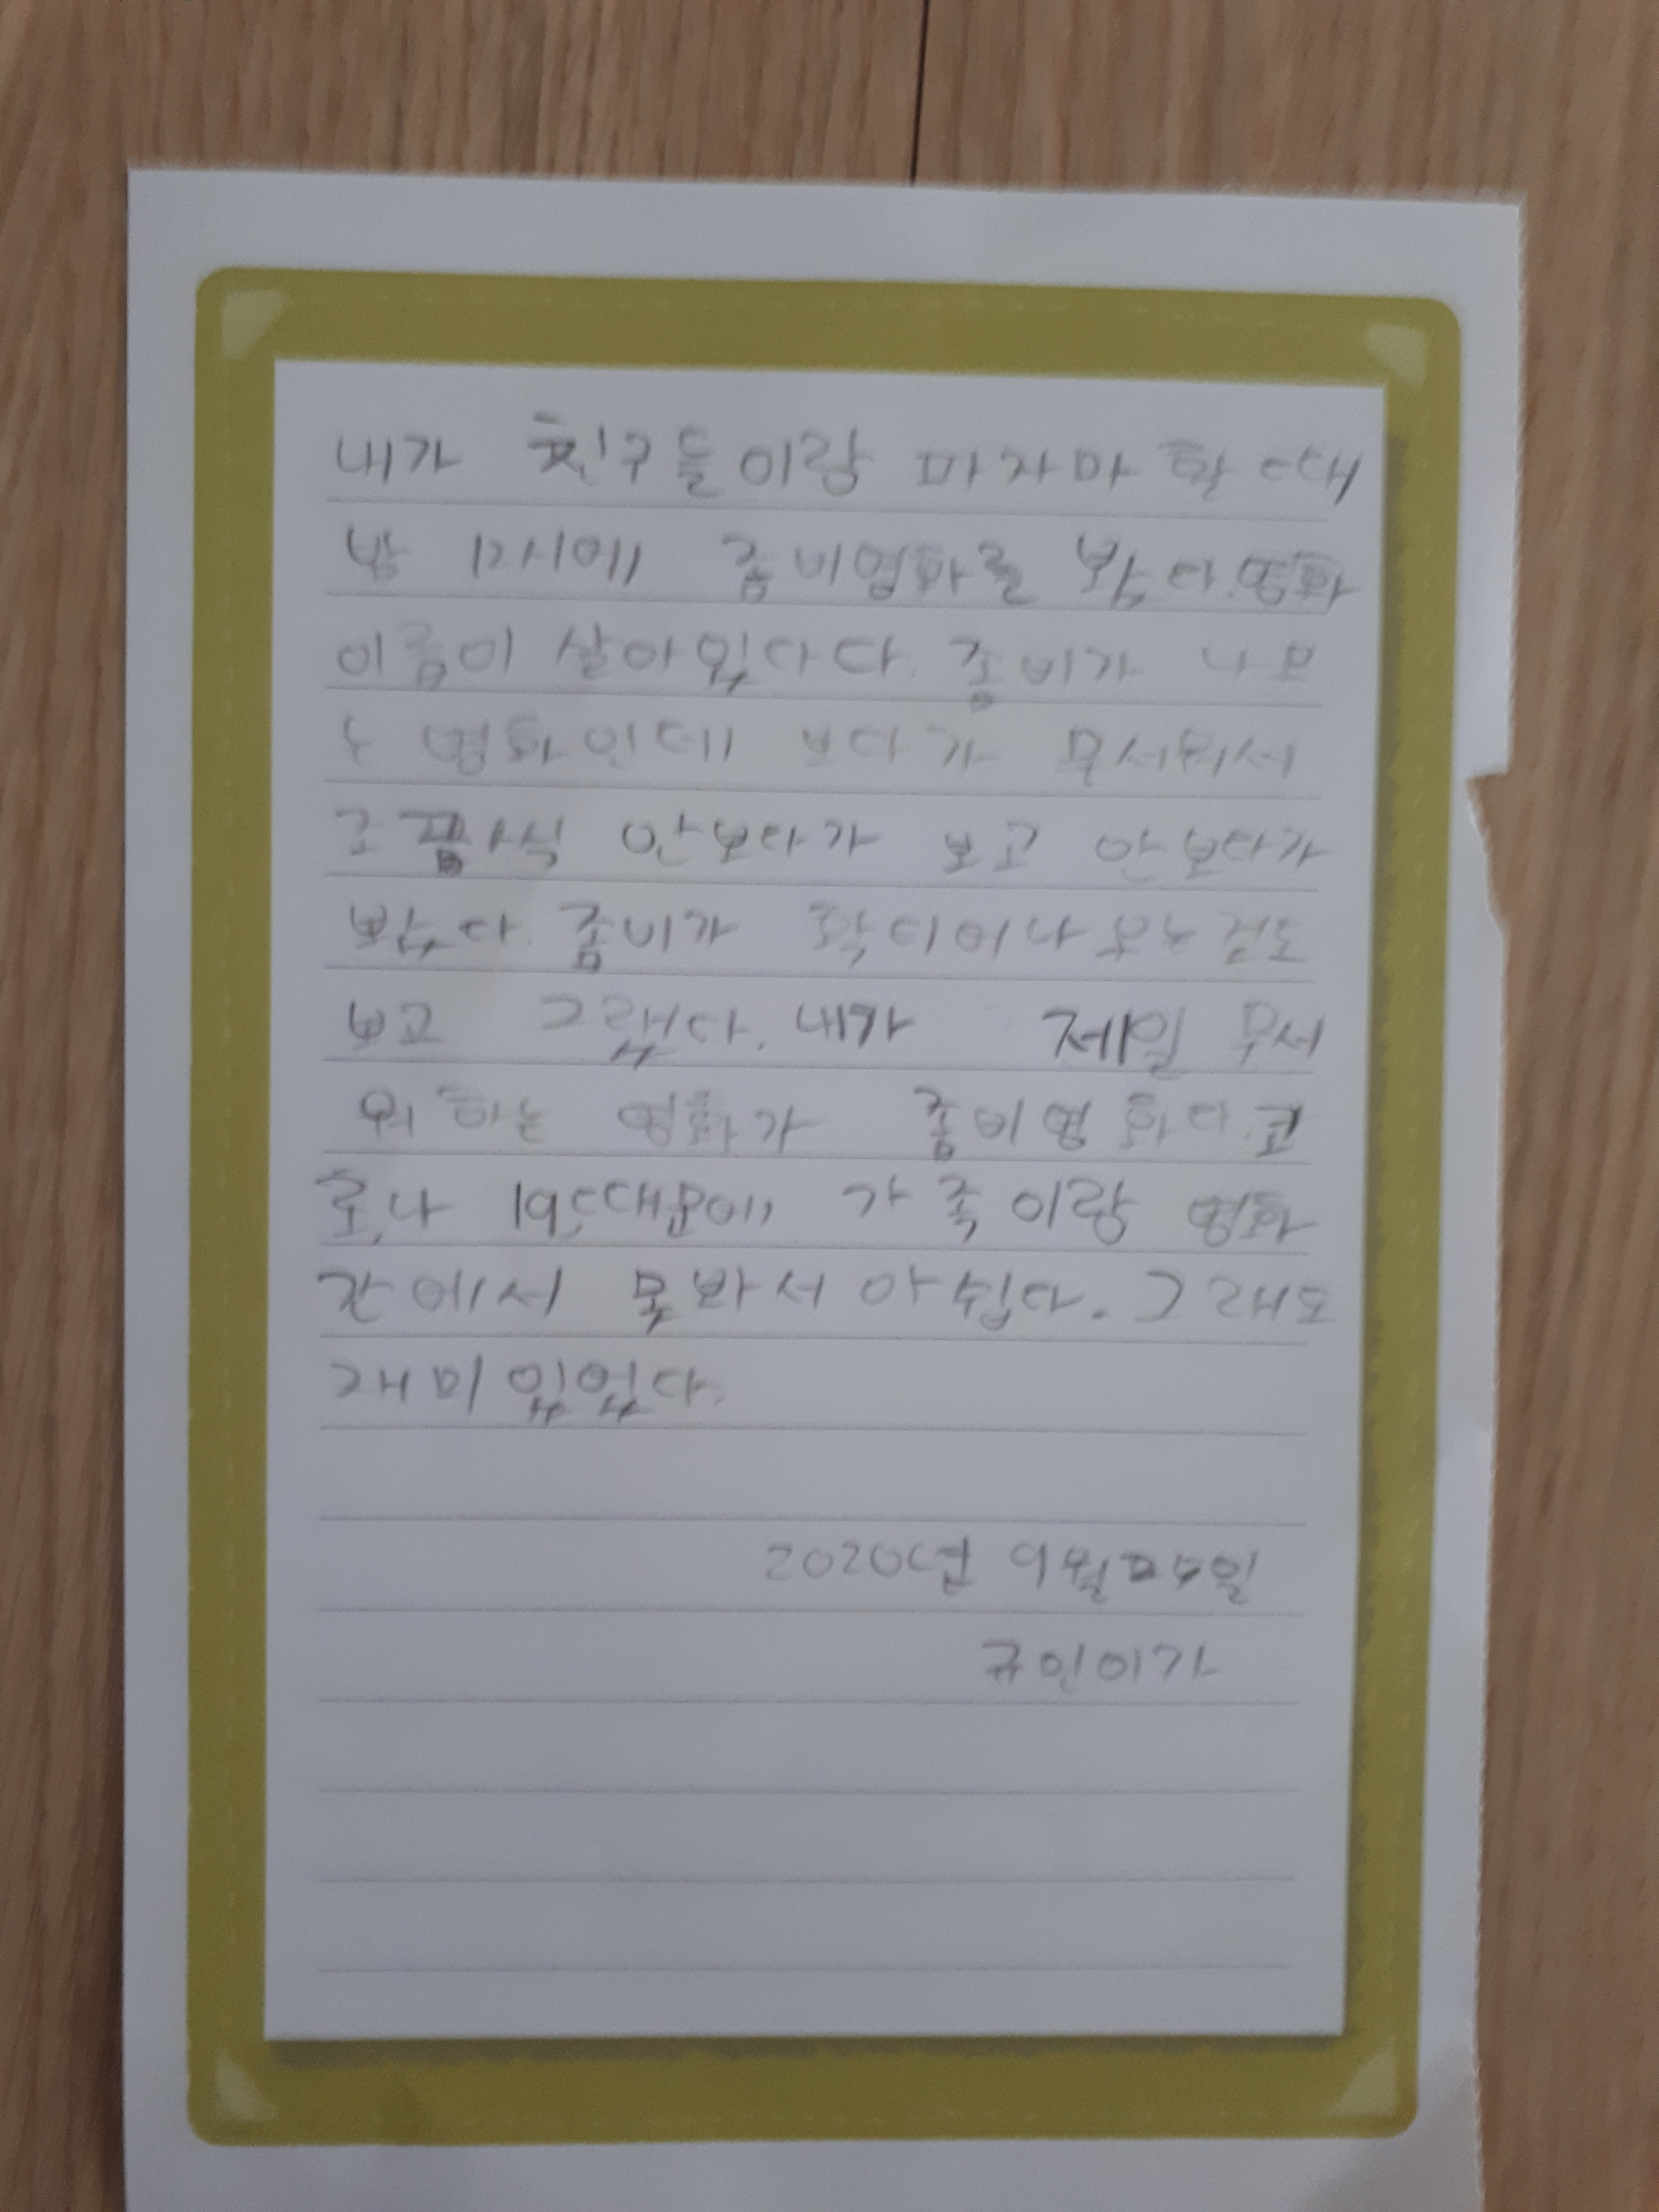 내가 친구들이랑 파자마 할 때
밤 12시에 좀비영화를 봤다. 영화
이름이 살아있다다. 좀비가 나오
는 영화인데 보다가 무서워서
안보다가 보고 안보다가
봤다. 좀비가 걸도
보고 그랬다. 내가 제일 무서
워 하는 영화가 좀비영화다. 코
로나 19때문에 가족이랑 영화
간에서 못봐서 아쉽다. 그래도
재미있었다.
2020년 9월 일
규인이가